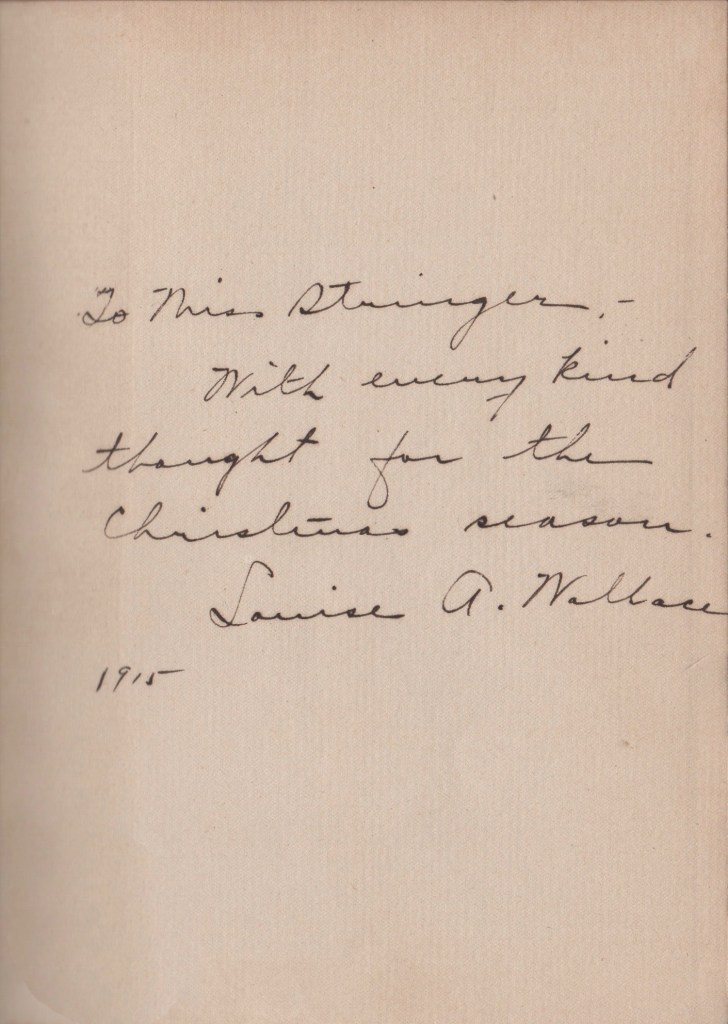 To Miss Stringer,-
With every kind
thought for the
Christmas season.
Louise A. Wallace
1915